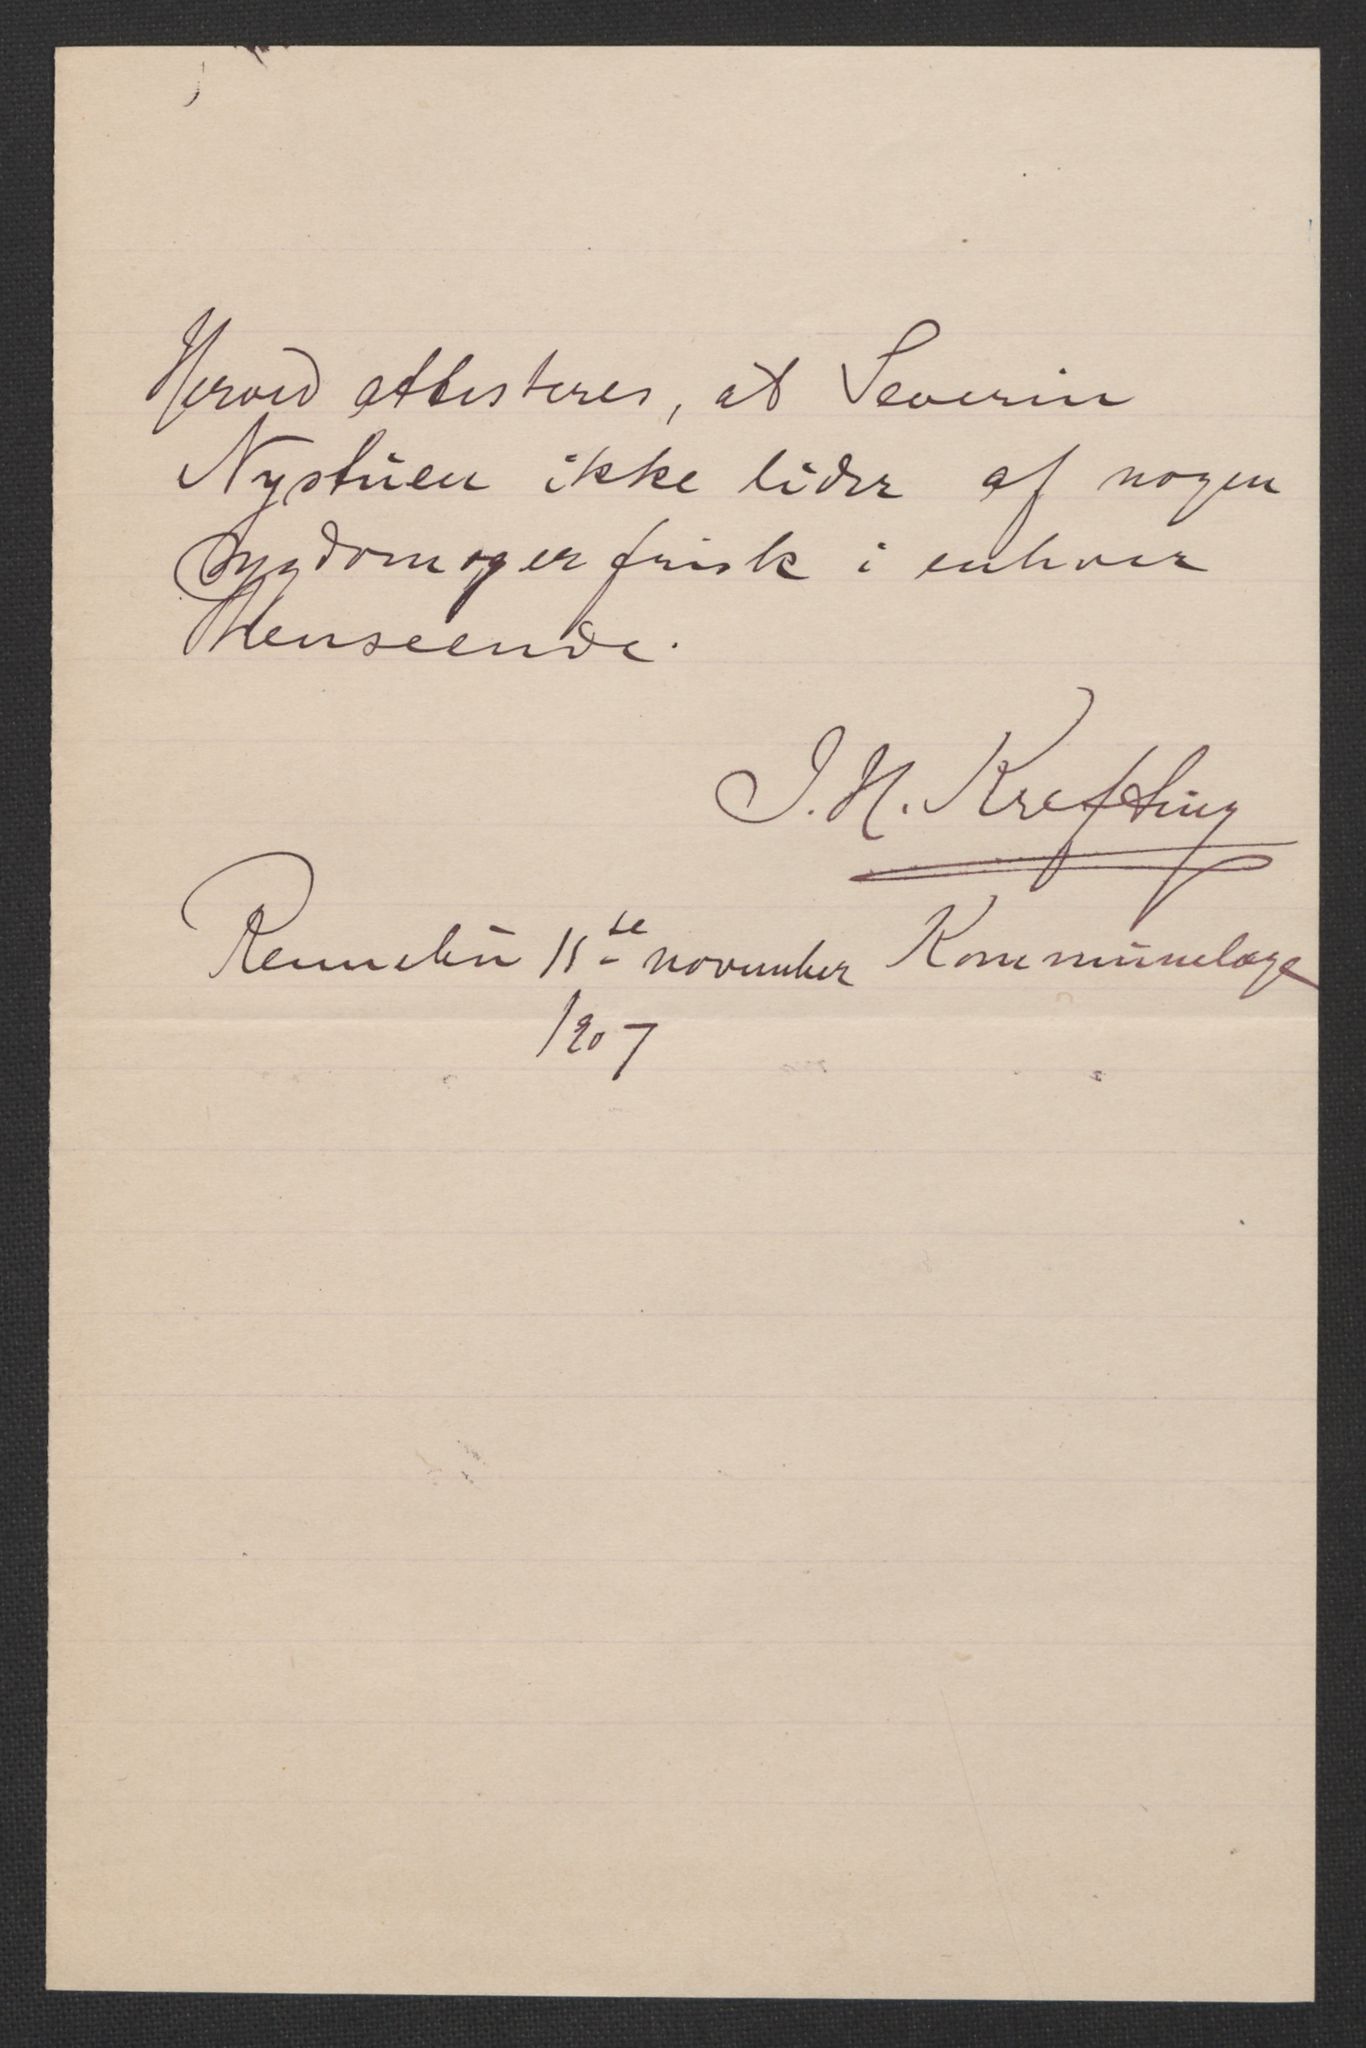 Herved attesteres, at Severin
Nystuen ikke lider af nogen
Sygdom og er frisk i enhver
Henseende.
J. H. Krefting
Rennebu 11-te november Kommunelæge
1907